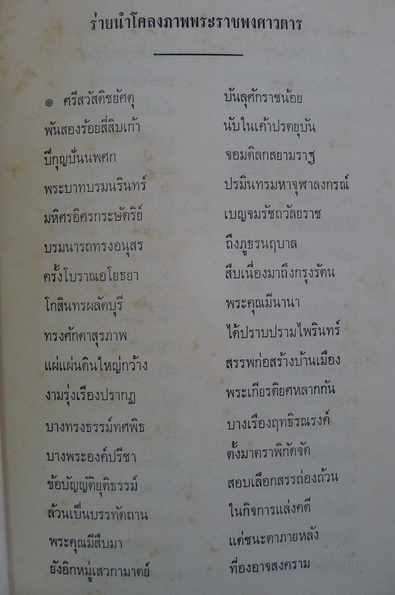 ร่ายนำโคลงภาพพระราชพงศาวดาร
๏ ศรีสวัสดิชยัศดุ บันลุศักราชน้อย
พันสองร้อยสี่สิบเก้า นับในเค้าปรตยุบัน
ปีกุญขั่นนพศก จอมดิลกสยามราฐ
พระบาทบรมนรินทร์ ปรมินทรมหาจุฬาลงกรณ์
มหิศรอิศรกระษัตริย์ เบญจมรัชถวัลยราช
บรมนารถทรงอนุสร ถึงภูธรนฤบาล
ครั้งโบราณอโยธยา สืบเนื่องมาถึงกรุงรัตน
โกสินทรผลัดบุรี พระคุณมีนานา
ทรงศักดาสุรภาพ ได้ปราบปรามไพรินทร์
แผ่แผ่นดินใหญ่กว้าง สรรพก่อสร้างบ้านเมือง
งามรุ่งเรืองปรากฏ พระเกียรติยศหลากกัน
บางทรงธรรม์ทศพิธ บางเรืองฤทธิรณรงค์
บางพระองค์ปรีชา ตั้งมาตราพิกัดจัด
ข้อบัญญัติยุติธรรม์ สอบเลือกสรรถ่องถ้วน
ล้วนเป็นบรรทัดถาน ในกิจการแล่งคดี
พระคุณมีสืบมา แต่ชนะดาภายหลัง
ยังอีกหมู่เสวกามาตย์ ที่องอาจสงคราม